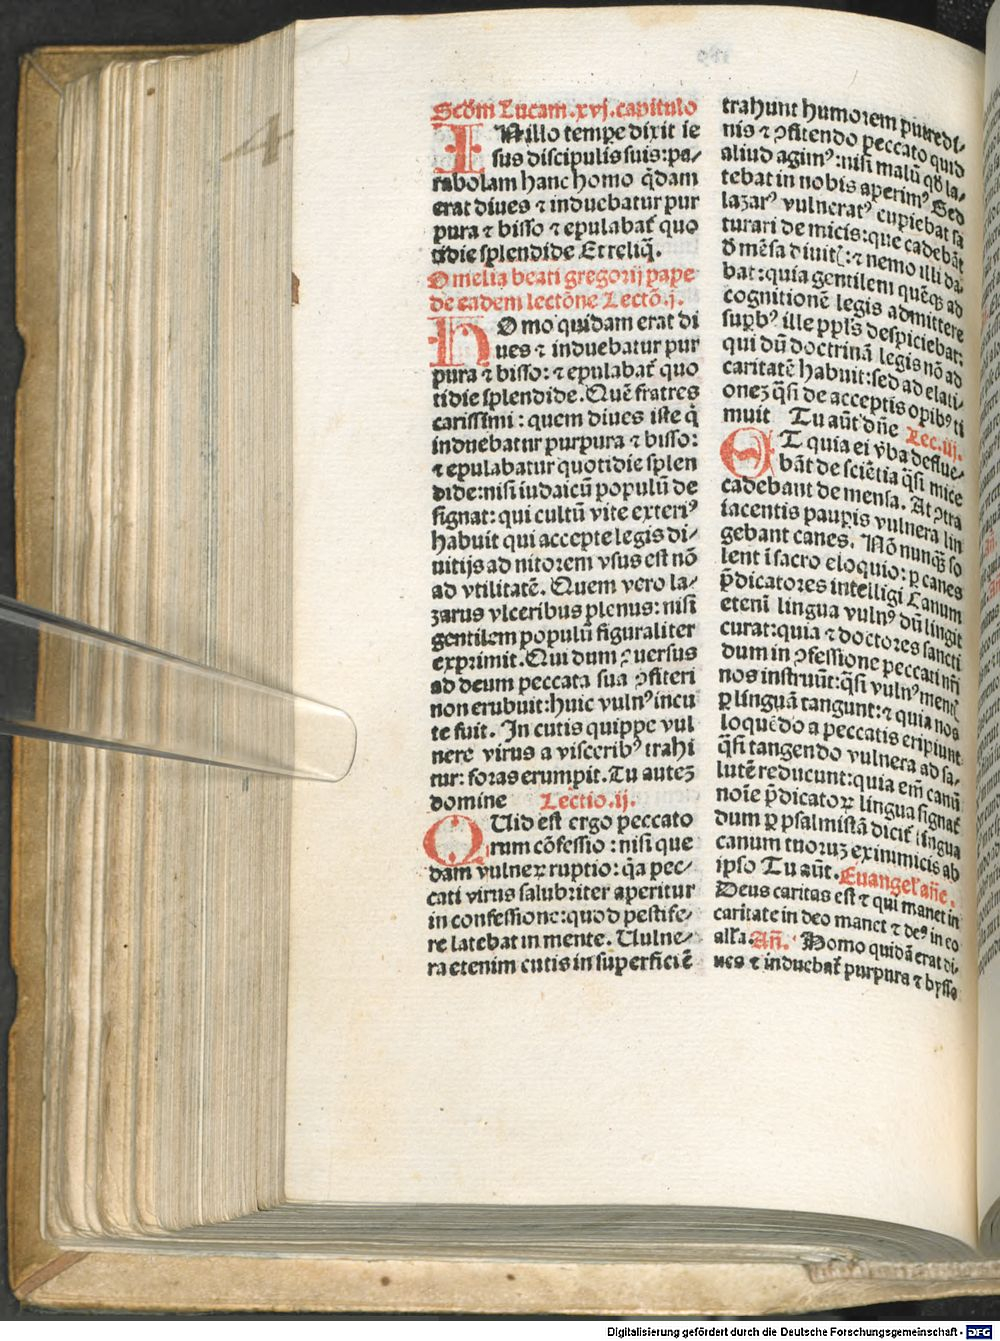 Scd̄m Lucam.xvj.capitulo
IN illo tempe dixit ie
sus discipulis suis: pa⸗
rabolam hanc homo q̄dam
erat diues ⁊ induebatur pur
pura ⁊ bisso ⁊ epulabat̄ quo
tidie splendide Et reliq̄.
Omelia beati gregorij pape
de eadem lectōne Lectō.j.
HOmo quidam erat di
ues ⁊ induebatur pur
pura ⁊ bisso: ⁊ epulabat̄ quo
tidie splendide. Quē fratres
carissimi: quem diues iste q̄
induebatur purpura ⁊ bisso:
⁊ epulabatur quotidie splen
dide: nisi iudaicū populū de
signat: qui cultū vite exteriꝰ
habuit qui accepte legis di⸗
uitijs ad nitorem vsus est nō
ad vtilitatē. Quem vero la⸗
zarus vlceribus plenus: nisi
gentilem populū figuraliter
exprimit. Qui dum ꝯuersus
ad deum peccata sua ꝯfiteri
non erubuit: huic vulnꝰ incu
te fuit. In cutis quippe vul
nere virus a visceribꝰ trahi
tur: foras erumpit. Tu autez
domine Lectio.ij.
QUid est ergo peccato
rum cōfessio: nisi que
dam vulneꝝ ruptio: q̄a pec⸗
cati virus salubriter aperitur
in confessione: quod pestife⸗
re latebat in mente. Uulne⸗
ra etenim cutis in superficiē
trahunt humorem putredi⸗
nis ⁊ ꝯfitendo peccato quid
aliud agimꝰ: nisi malū qd̄ la⸗
tebat in nobis aperimꝰ Sed
lazarꝰ vulneratꝰ cupiebat sa
turari de micis: que cadebāt
d̄ mēsa diuit̄: ⁊ nemo illi da⸗
bat: quia gentilem quēqꝫ ad
cognitionē legis admittere
supbꝰ ille ppl̄s despiciebat:
qui dū doctrinā legis nō ad
caritatē habuit: sed ad elati⸗
onez q̄si de acceptis opibꝰ ti
muit Tu aūt dn̄e Lec.iij.
ET quia ei v̄ba deflue⸗
bāt de sciētia q̄si mice
cadebant de mensa. At ꝯtra
iacentis paupis vulnera lin
gebant canes. Nō nunqꝫ so
lent ī sacro eloquio: ꝑ canes
p̄dicatores intelligi Canum
etenī lingua vulnꝰ dū lingit
curat: quia ⁊ doctores sancti
dum in ꝯfessione peccati nr̄i
nos instruūt: q̄si vulnꝰ ment̄
ꝑ linguā tangunt: ⁊ quia nos
loquēdo a peccatis eripiunt
q̄si tangendo vulnera ad sa⸗
lutē reducunt: quia em̄ canū
noīe p̄dicatoꝝ lingua signat̄
dum ꝑ psalmistā dicit̄ lingua
canum tuoruz ex inimicis ab
ipso Tu aūt. Euangel̄ an̄e.
Deus caritas est ⁊ qui manet in
caritate in deo manet ⁊ deꝰ in eo
all̄a. An̄. Homo quidā erat di⸗
ues ⁊ induebat̄ purpura ⁊ bysso
Digitalisierung gefördert durch die Deutsche Forschungsgemeinschaft - DFG